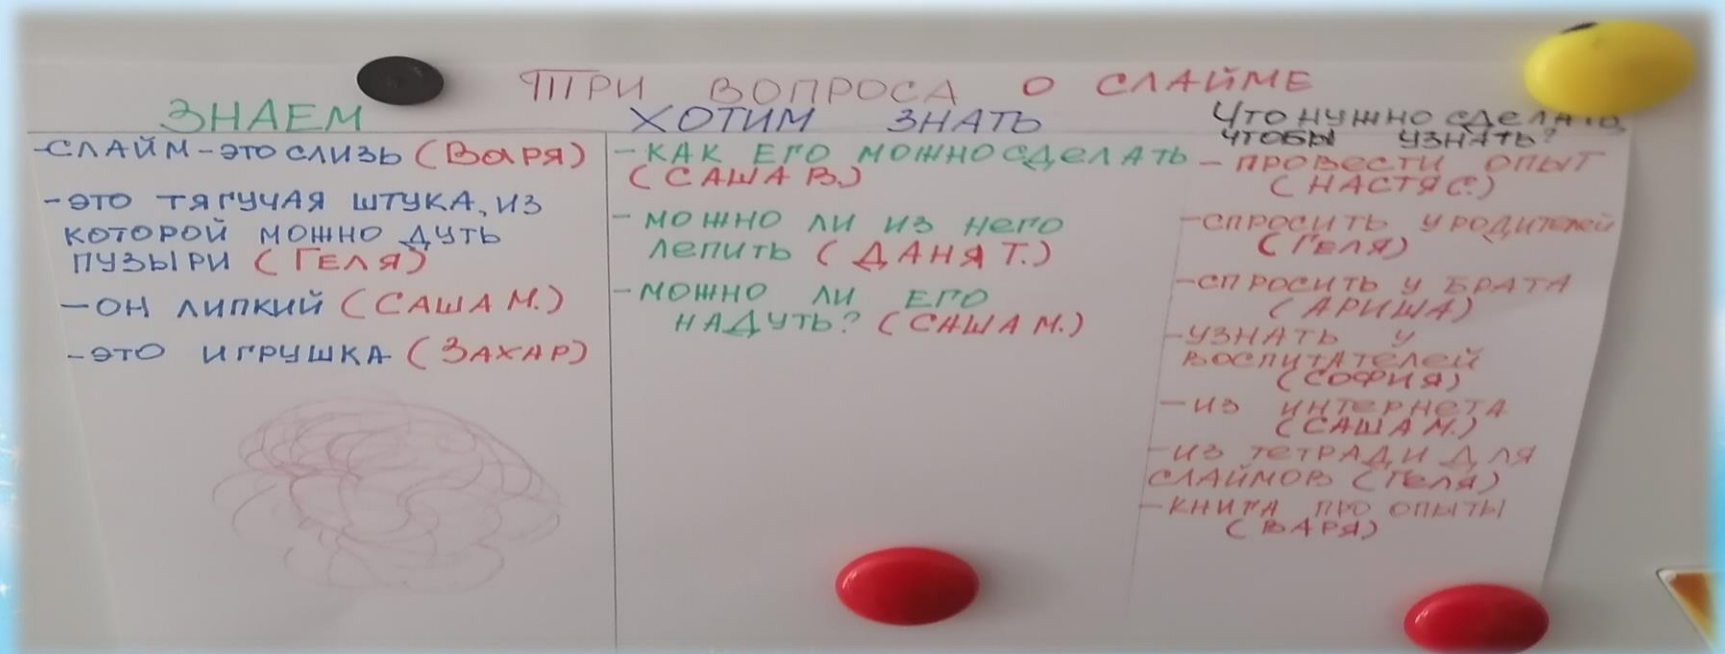 ТРИ ВОПРОСА О СЛАЙМЕ
ЗНАЕМ
-СЛАЙМ-ЭТО СЛИЗЬ (ВАРЯ)
-ЭТО ТЯГУЧАЯ ШТУКА, ИЗ
КОТОРОЙ МОЖНО ДУТЬ
ПУЗЫРИ (ГЕЛЯ)
-ОН ЛИПКИЙ (САША М.)
-ЭТО ИГРУШКА (ЗАХАР)
ХОТИМ ЗНАТЬ
-КАК ЕГО МОЖНО СДЕЛАТЬ
(САША В.)
-МОЖНО ЛИ ИЗ НЕГО
ЛЕПИТЬ (ДАНЯ Т.)
-МОЖНО ЛИ ЕГО
НАДУТЬ? (САША М.)
ЧТО НУЖНО СДЕЛАТЬ,
ЧТОБЫ УЗНАТЬ?
-ПРОВЕСТИ ОПЫТ
(НАСТЯ С.)
-СПРОСИТЬ У РОДИТЕЛЕЙ
(ГЕЛЯ)
-СПРОСИТЬ У БРАТА
(АРИША)
-УЗНАТЬ У
ВОСПИТАТЕЛЕЙ
(СОФИЯ)
-ИЗ ИНТЕРНЕТА
(САША М.)
-ИЗ ТЕТРАДИ ДЛЯ
СЛАЙМОВ (ГЕЛЯ)
-КНИГА ПРО ОПЫТЫ
(ВАРЯ)